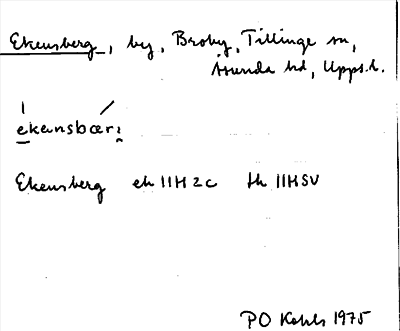 Ekensberg, by, Broby, Tillinge sn,
Åsunda hd, Upps.l.
ekənsbærꝫ
Ekensberg ek 11H 2c th 11HSV
PO Kohls 1975